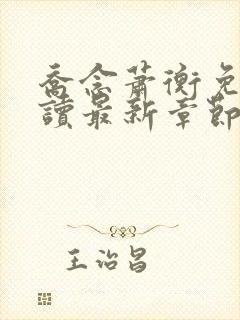 喬念蕭衡免
讀最新章節
王治昌